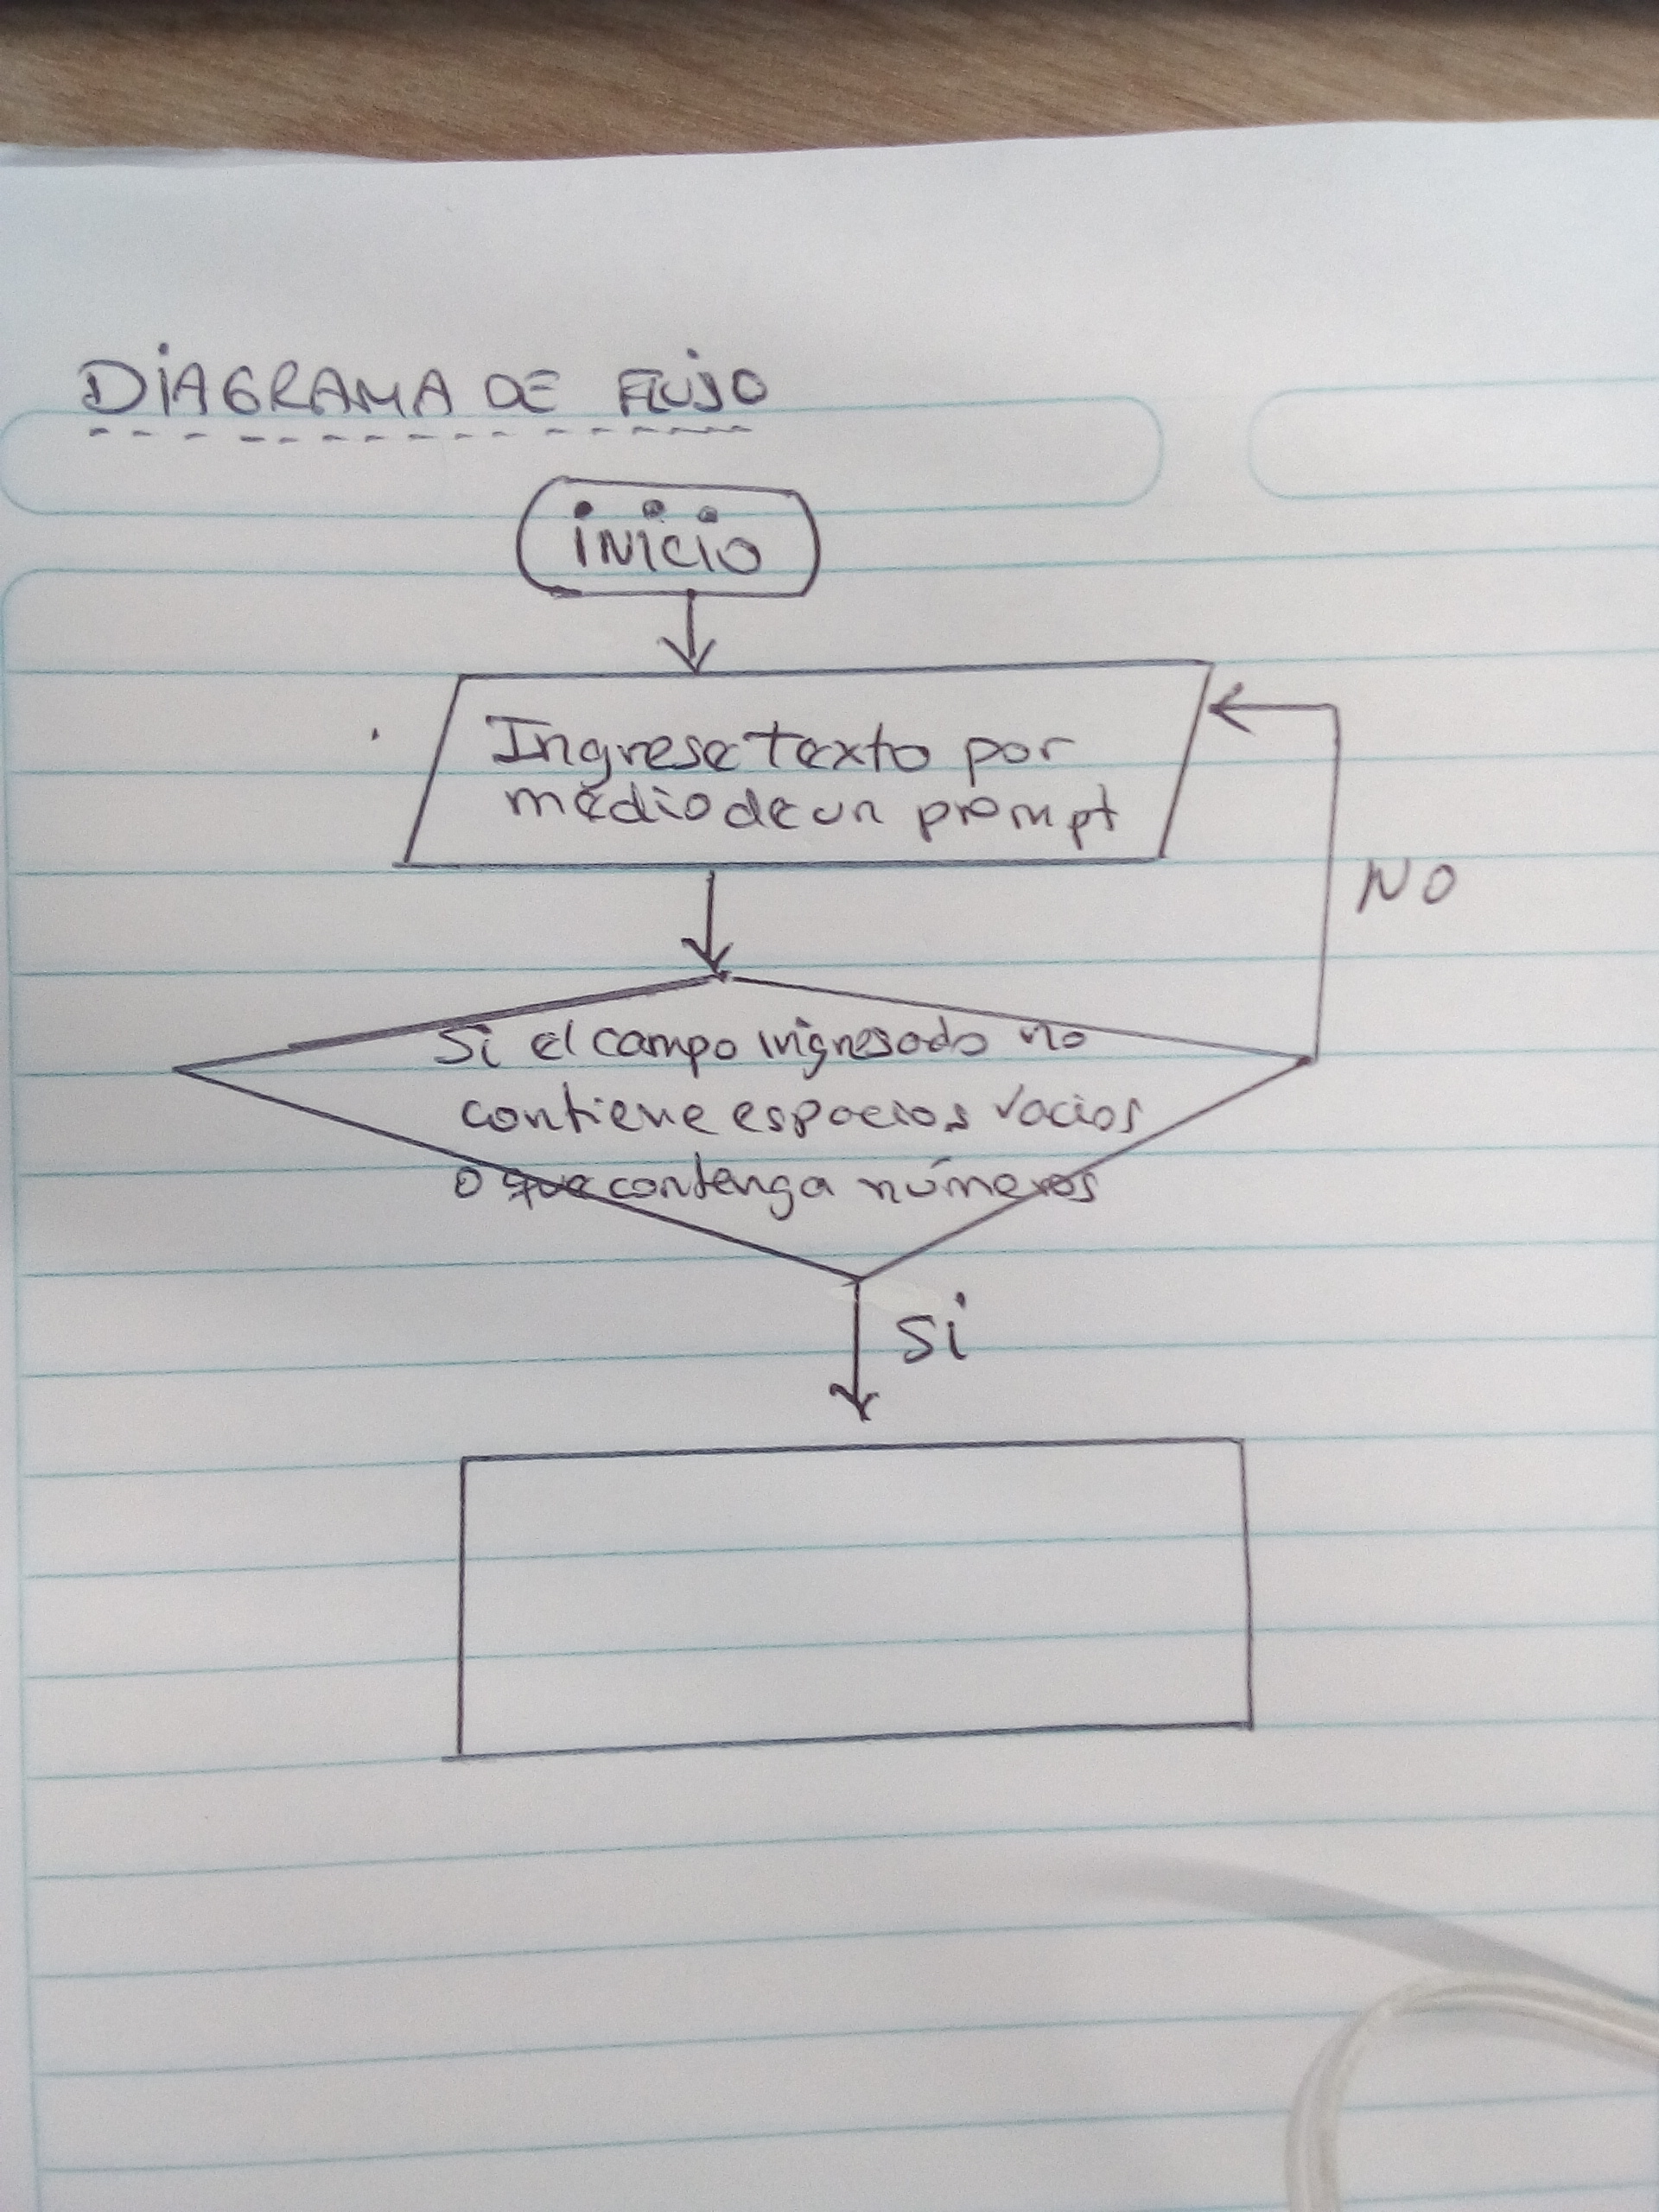 DiAGRAMA DE FLUJO
iNiCiO
Ingrese texto por
medio de un prompt
NO
Si el campo ingresado no
contiene espacios vacios
o que contenga números
Si